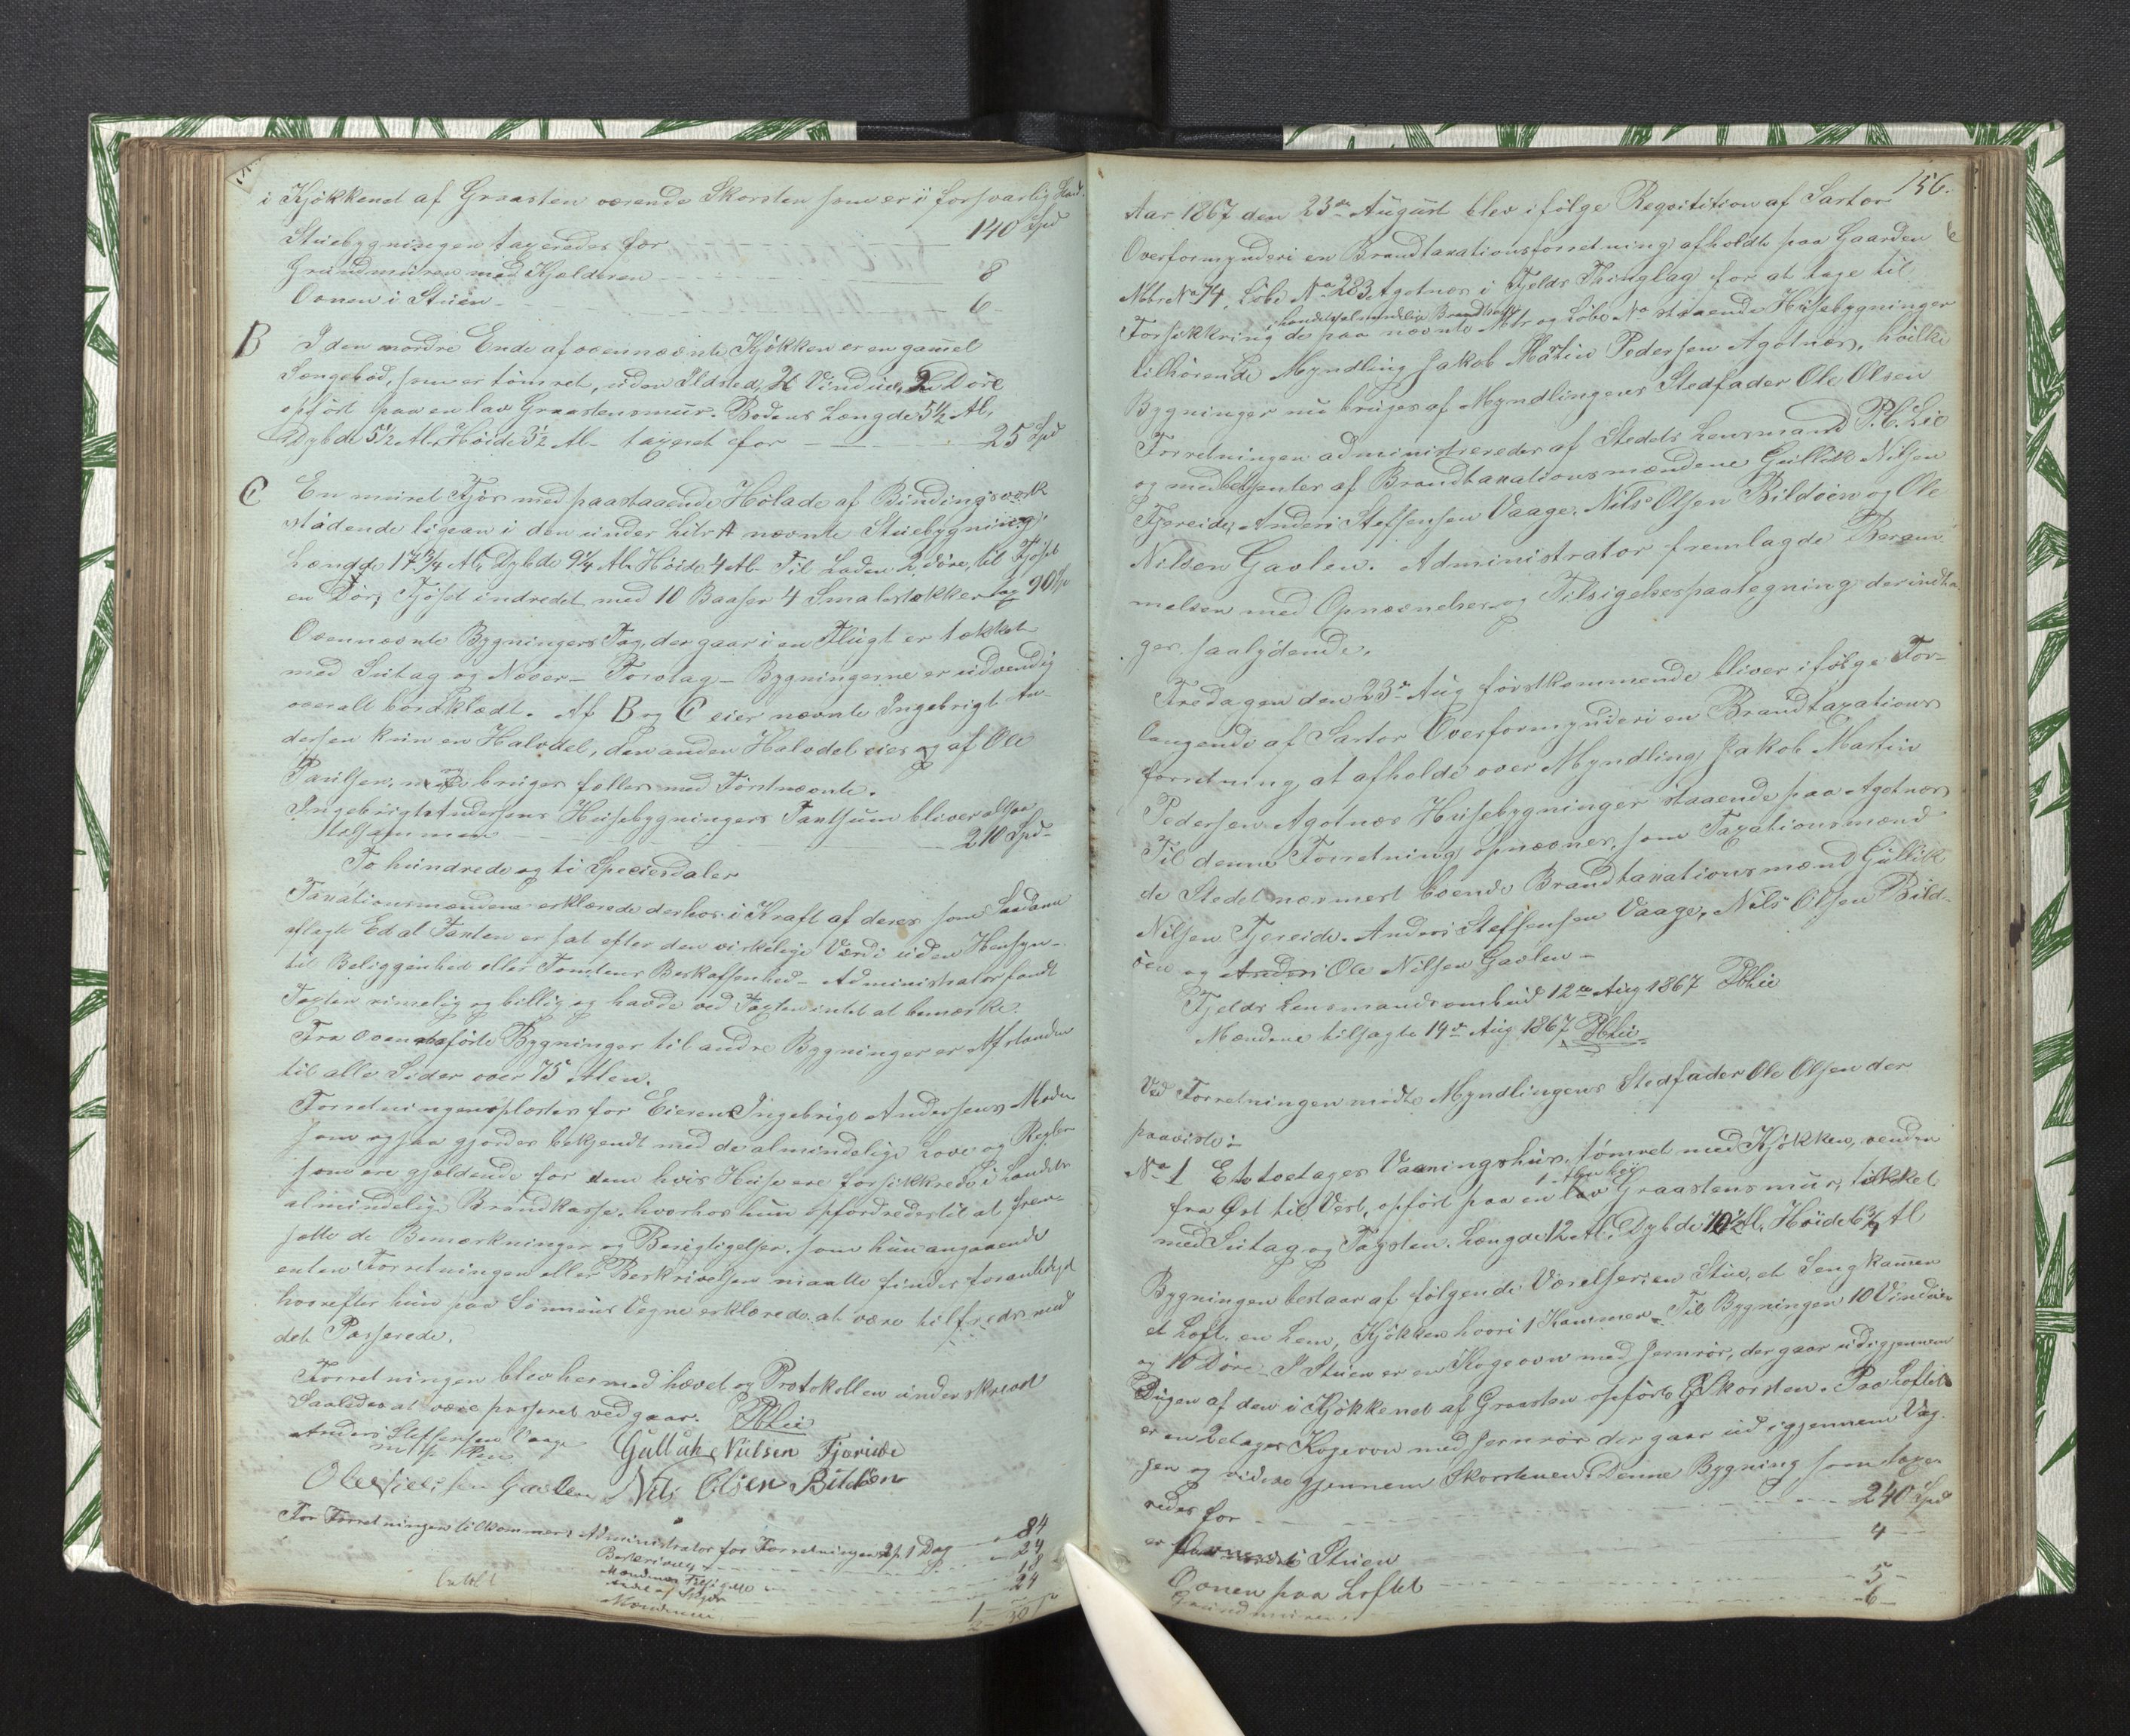 i Kjøkkenet af Graasten værende Skorsten som er i forsvarlig Stand.
Stuebygningen taxeredes for 140 Spd
Grundmuren med Kjælderen 8
Ovnen i Stuen 6
B I den nordre Ende af ovennævnte Kjøkken er en gamel
Sengebod, som er tømret, uden Ildsted, 2 Vinduer, 2 Døre
opført paa en lav Graastensmuur. Bodens Længde 5½ Al,
Dybde 5½ Al. Høide 3½ Al - taxeret for 25 Spd
C En muret Fjøs med paastaaende Hølade af Bindingsværk
stødende ligean i den under Litr A nævnte Stuebygning.
Længde 17¾ Al, Dybde 9¼ Al. Høide 4 Al. Til Laden 2 Døre, til Fjøset
en Dør, Fjøset indredet med 10 Baaser 4 Smalestøkker 90
Ovennævnte Bygningers Tag, der gaar i en Flugt er tækket
med Sutag og Næver - Torvtag - Bygningerne er udvendig
overalt bordklædt. Af B og C eier nævnte Ingebrigt An-
dersen kun en Halvdel, den anden Halvdel eies af Ole
Paulsen, og bruges fælles med Førstnævnte.
Ingebrigt Andersens Huusebygningers Taxtsum bliver altsaa
tilsammen 210 Spd
To hundrede og ti Speciesdaler
Taxationsmændene erklærede derhos i Kraft af deres som Saadanne
aflagte Ed at Taxten er sat efter den virkelige Værdi uden Hensyn
til Beliggenhed eller Tomtens Beskaffenhed - Administrator fandt
Taxten rimelig og billig og havde ved Taxten intet at bemærke.
Fra ovenanførte Bygninger til andre Bygninger er Afstanden
til alle Sider over 75 Alen.
Forretningen oplæstes for Eieren Ingebrigt Andersens Moder
som ogsaa gjordes bekjendt med de almindelige Love og Regler
som ere gjældende for dem hvis Huse ere forsikkrede i Landets
almindelige Brandkasse, hvorhos hun opfordredes til at frem-
sætte de Bemærkninger og Berigtigelser, som hun angaaende
enten Forretningen eller Beskrivelsen maatte finde foranlediget
hvorefter hun paa Sønnens Vegne erklærede at være tilfreds med
det Passerede.
Forretningen blev hermed hævet og Protokollen underskrevet
Saaledes at være passeret vedgaar. PCLie
Anders Steffensen Vaage Gulluk Nielsen Fjæreide
m/ p Pen
Ole Nielsen Gavlen Nils Olsen Bildøen
For Forretningen tilkommer: Administrator for Forretningen 1 Dag 84
Beskrivelse 24
Mændenes Tilsigelse 18
24
Mændene
betalt
156.
Aar 1867 den 23de August blev ifølge Reqvisition af Sartor
Overformynderi en Brandtaxationsforretning afholdt paa Gaarden
Mtr No 74, Løbe No 283 Agotnæs i Fjelds Thinglag for at tage til
i Landets almindelige Brandkasse
Forsikkring de paa nævnte Mtr og Løbe No staaende Husebygninger
tilhørende Myndling Jakob Martin Pedersen Agotnæs, hvilke
Bygninger nu bruges af Myndlingens Stedfader Ole Olsen
Forretningen administreredes af Stedets Lensmand P. C. Lie
og medbetjentes af Brandtaxationsmændene Gullik Nilsen
Fjereide, Anders Steffensen Vaage, Nils Olsen Bildøen og Ole
Nilsen Gavlen. Administrator fremlagde Beram-
melsen med Opnævnelse og Tilsigelsespaategning der indta-
ges saalydende.
Fredagen den 23de Aug førstkommende bliver ifølge For-
langende af Sartor Overformynderi en Brandtaxations
forretning at afholde over Myndling Jakob Martin
Pedersen Agotnæs Husebygninger staaende paa Agotnæs
Til denne Forretning opnævnes, som Taxationsmænd
de Stedet nærmest boende Brandtaxationsmænd Gullik
Nilsen Fjereide, Anders Steffensen Vaage, Nils Olsen Bild-
øen og Anders Ole Nilsen Gavlen -
Fjelds Lensmandsombud 12te Aug 1867 PCLie
Mændene tilsagte 19de Aug 1867 PCLie
Ved Forretningen mødte Myndlingens Stedfader Ole Olsen der
paaviste:
No 1 Et toetages Vaaningshus, tømret med Kjøkken, vender
1 Alen høi
fra Øst til Vest, opført paa en lav Graastensmur, tækket
med Sutag og Tagsten. Længde 12 Al, Dybde 10½ Al, Høide 6¾ Al
Bygningen bestaar af følgende Værelser: en Stue, et Sengkammer
et Loft, en Lem, Kjøkken hvori 1 Kammer. Til Bygningen 10 Vinduer
og 10 Døre. I Stuen er en Kogeovn med Jernrør, der gaar ud igjennem
Bugen af den i Kjøkkenet af Graasten opførte Skorsten. Paa Loftet
er en 2etages Kogeovn med Jernrør der gaar ud igjennem Væg-
gen og videre gjennem Skorstenen. Denne Bygning som taxe-
redes for 240 Spd
Ovnen i Stuen 4
Ovnen paa Loftet 5
Grundmuren 6